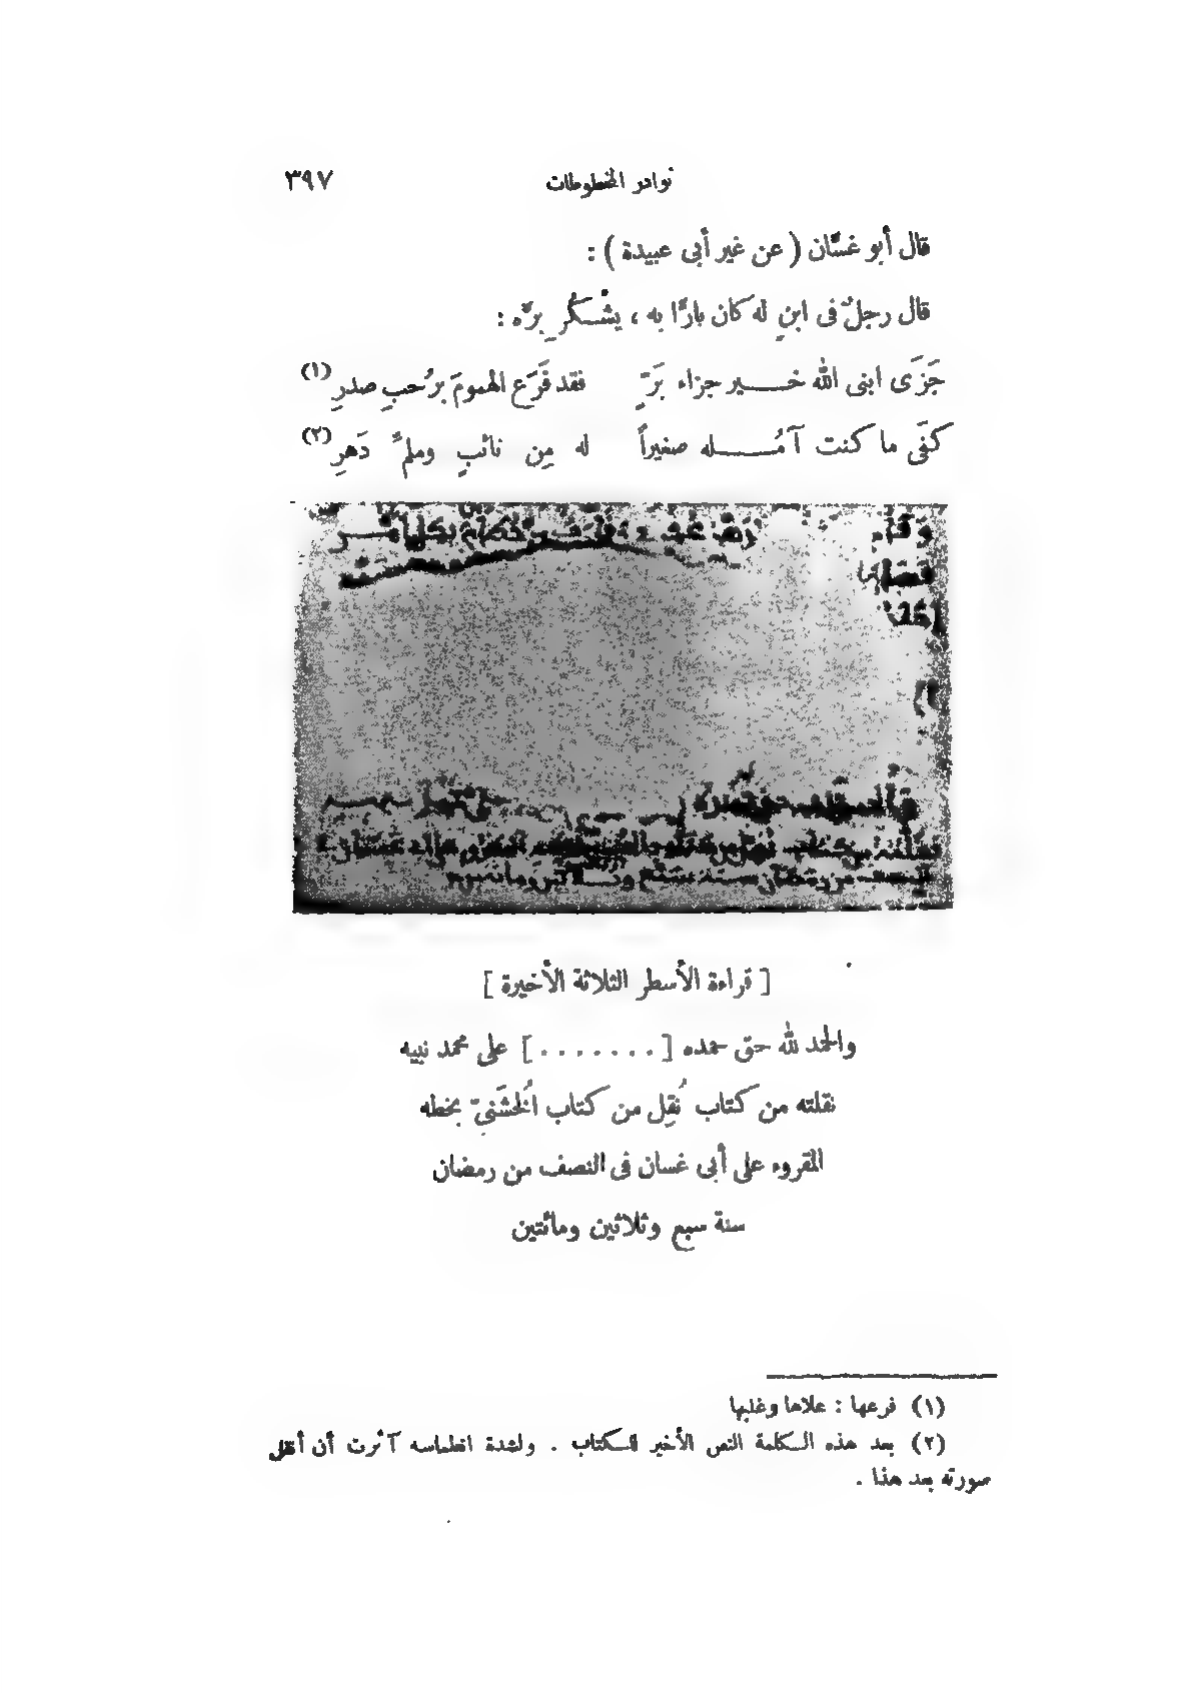 نوادر المخطوطات ٣٩٧
قال أبو غسَّان ( عن غير أبى عبيدة ) :
قال رجلٌ فى ابنٍ له كان بارًّا به ، يشْكُر بِرَّه :
جَزَى ابنى الله خير جزاء بَرٍّ فقد فَرَع الهمومَ برُحبِ صدرِ (١)
كفَى ما كنت آمُله صغيراً له مِن نائبٍ وملمِّ دَهرِ (٢)
[ قراءة الأسطر الثلاثة الأخيرة ]
والحمد لله حقّ حمده [ . . . . . . . ] على محمد نبيه
نقلته من كتاب نُقِل من كتاب الُخشَنيّ بخطه
المقروء على أبى غسان فى النصف من رمضان
سنة سبع وثلاثين ومائتين
(١) فرعها : علاها وغلبها
(٢) بعد هذه الكلمة النص الأخير للكتاب . ولشدة انطماسه آثرت أن أنقل
صورته بعد هذا .